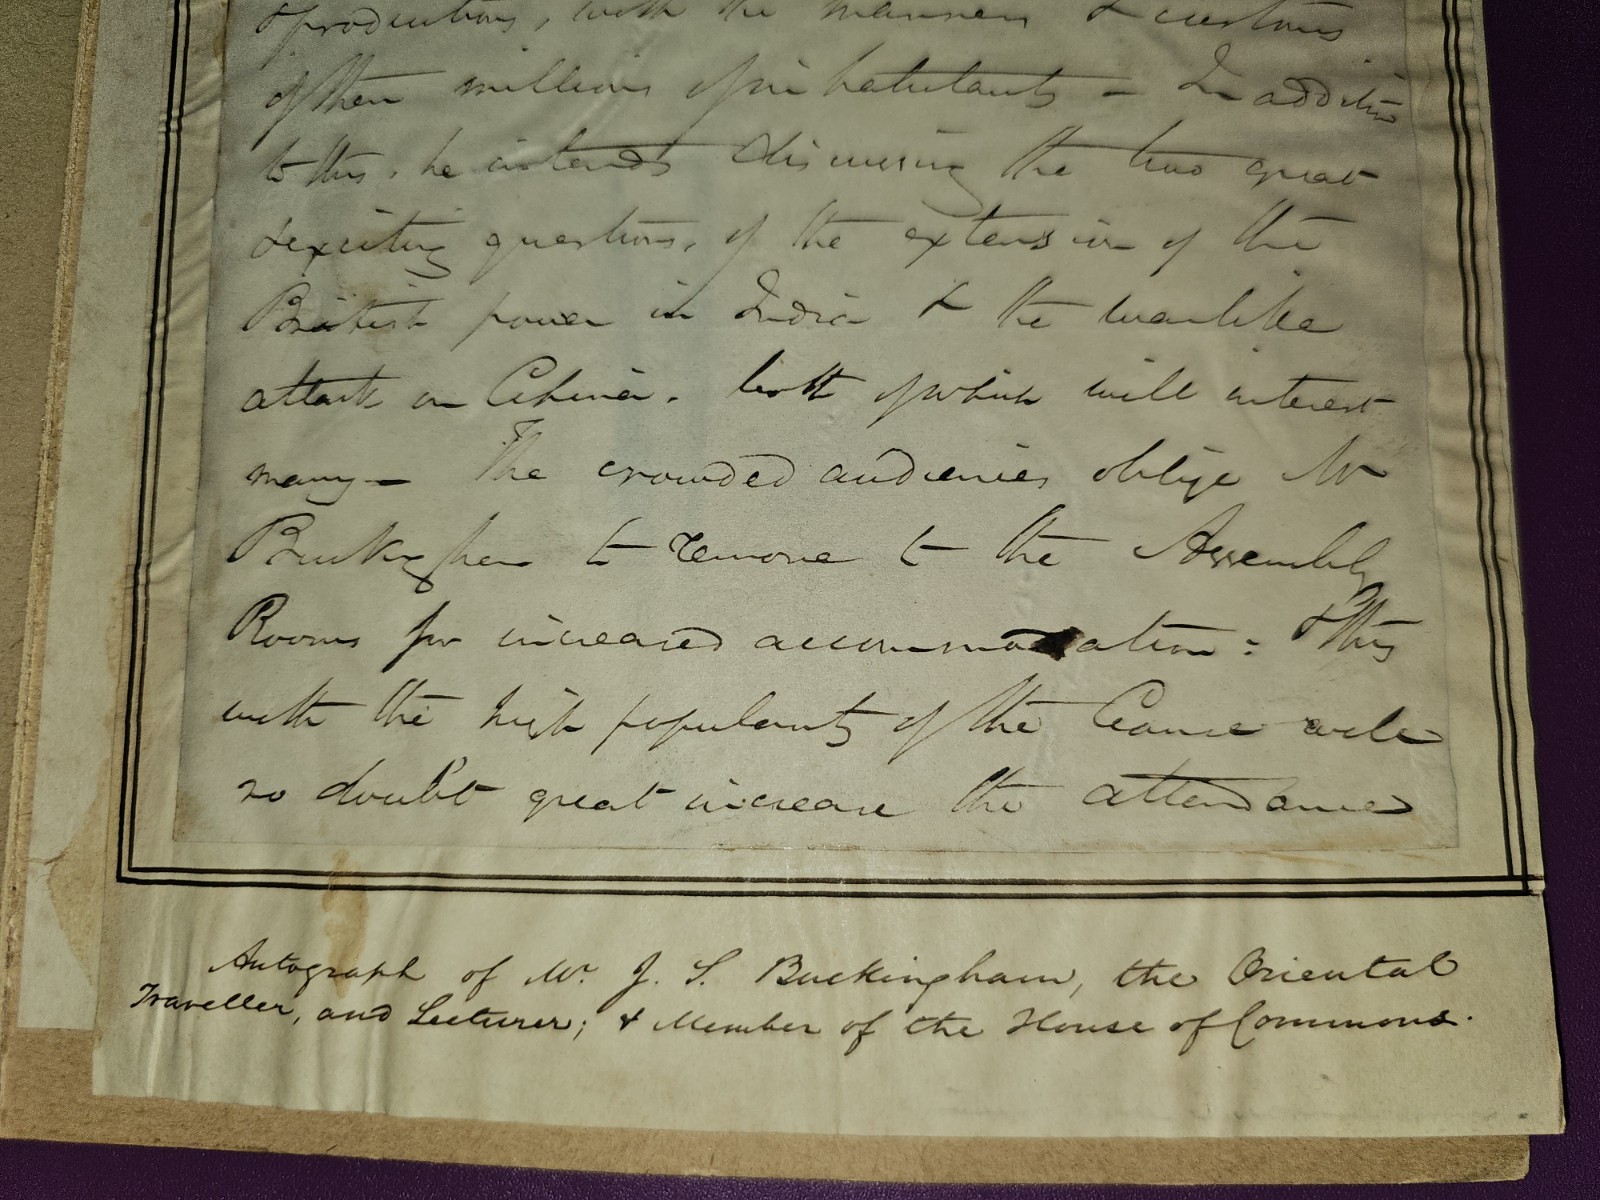 & productions, with the manners & customs
of their millions of inhabitants – In addition
to this, he intends discussing the two great
& exciting questions, of the extension of the
British power in India & the warlike
attack on China, both of which will interest
many – The crowded audiences oblige Mr
Buckingham to remove to the Assembly
Rooms for increased accommodation: & this
with the high popularity of the Cause will
no doubt great increase the attendance
Autograph of Mr. J. S. Buckingham, the Oriental
Traveller, and Lecturer; & Member of the House of Commons.